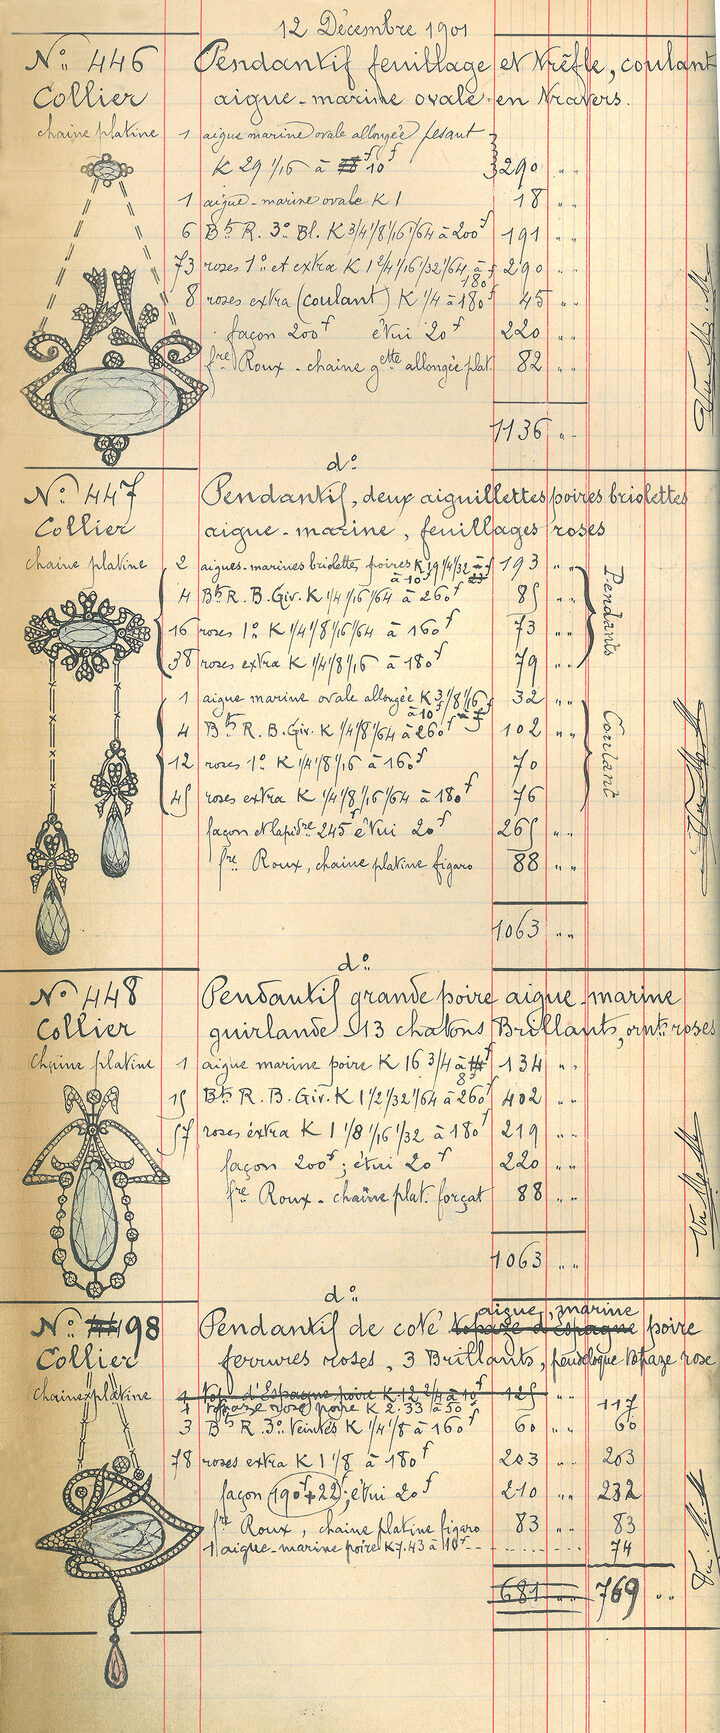 12 Décembre 1901
N° 446 Pendantif feuillage et trêfle, coulant
Collier aigue-marine ovale en travers.
chaine platine 1 aigue marine ovale allongée pesant
K 29 1/16 à 10f 290 " "
1 aigue-marine ovale K 1 18 " "
6 Bts R. 3° Bl. K 3/4 1/8 1/16 1/64 à 200f 191 " "
73 roses 1° et extra K 1 2/4 1/16 1/32 1/64 à 180f 290 " "
8 roses extra (coulant) K 1/4 à 180f 45 " "
façon 200f étui 20f 220 " "
fre Roux - chaine gette allongée plat. 82 " "
1136 " "
d°
N° 447 Pendantif, deux aiguillettes poires briolettes
Collier aigue-marine, feuillages roses
chaine platine 2 aigues-marines briolettes poires K 19 1/4 1/32 à 10f 193 " "
4 Bts R. B. Giv. K 1/4 1/16 1/64 à 260f 85 " "
16 roses 1° K 1/4 1/8 1/16 1/64 à 160f 73 " "
38 roses extra K 1/4 1/8 1/16 à 180f 79 " "
Pendants
1 aigue marine ovale allongée K 3 1/8 1/16 à 10f 32 " "
4 Bts R. B. Giv. K 1/4 1/8 1/64 à 260f 102 " "
12 roses 1° K 1/4 1/8 1/16 à 160f 70 " "
45 roses extra K 1/4 1/8 1/16 1/64 à 180f 76 " "
Coulant
façon et lapidre 245f étui 20f 265 " "
fre Roux, chaine platine figaro 88 " "
1063 " "
d°
N° 448 Pendantif grande poire aigue-marine
Collier guirlande 13 chatons Brillants, ornts roses
Chaine platine 1 aigue marine poire K 16 3/4 à 8f 134 " "
15 Bts R. B. Giv. K 1 1/2 1/32 1/64 à 260f 402 " "
57 roses éxtra K 1 1/8 1/16 1/32 à 180f 219 " "
façon 200f; étui 20f 220 " "
fre Roux - chaîne plat. forçat 88 " "
1063 " "
d°
aigue, marine
N° 98 Pendantif de coté topaze d'Espagne poire
Collier ferrures roses, 3 Brillants, pendeloque topaze rose
Chaine platine 1 topz d'Espagne poire K 12 2/4 à 10f 125 " "
1 topaze rose poire K 2.33 à 50f 117
3 Bts R. 3° teintés K 1/4 1/8 à 160f 60 " " 60
78 roses extra K 1 1/8 à 180f 203 " " 203
façon 190f + 22f; étui 20f 210 " " 232
fre Roux, chaine platine figaro 83 " " 83
1 aigue-marine poire K 7.43 à 10f 74
681 " " 769 " "